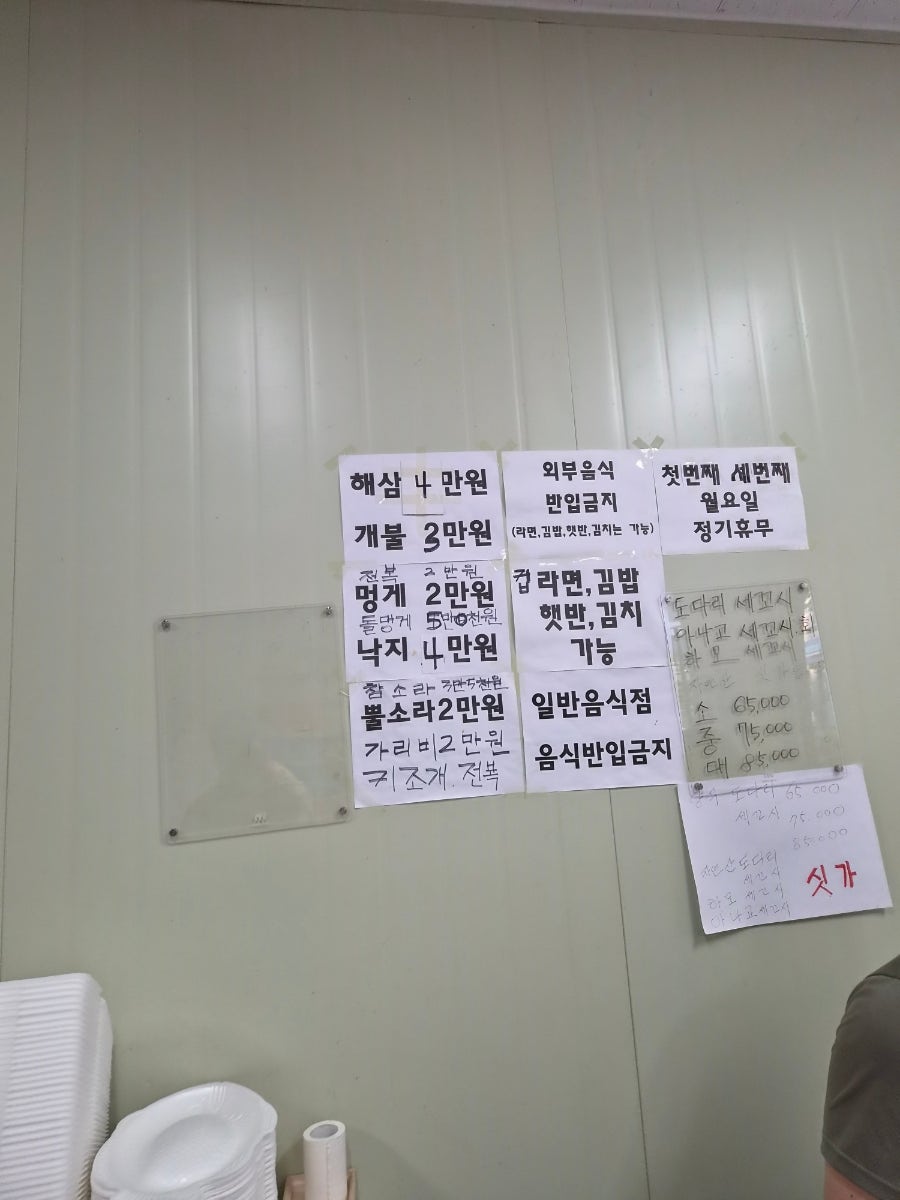 해삼 4 만원
개불 3만원
전복 2만원
멍게 2만원
돌멍게
낙지 4만원
참소라 3만5천원
뿔소라2만원
가리비2만원
키조개. 전복
외부음식
반입금지
(라면,김밥,햇반,김치는 가능)
컵라면,김밥
햇반,김치
가능
일반음식점
음식반입금지
첫번째 세번째
월요일
정기휴무
도다리 세꼬시
아나고 세꼬시.회
하모 세꼬시
소 65,000
중 75,000
대 85,000
도다리 65.000
세꼬시 75.000
85.000
자연산도다리
세꼬시
하모 세꼬시
아나고세꼬시
싯가